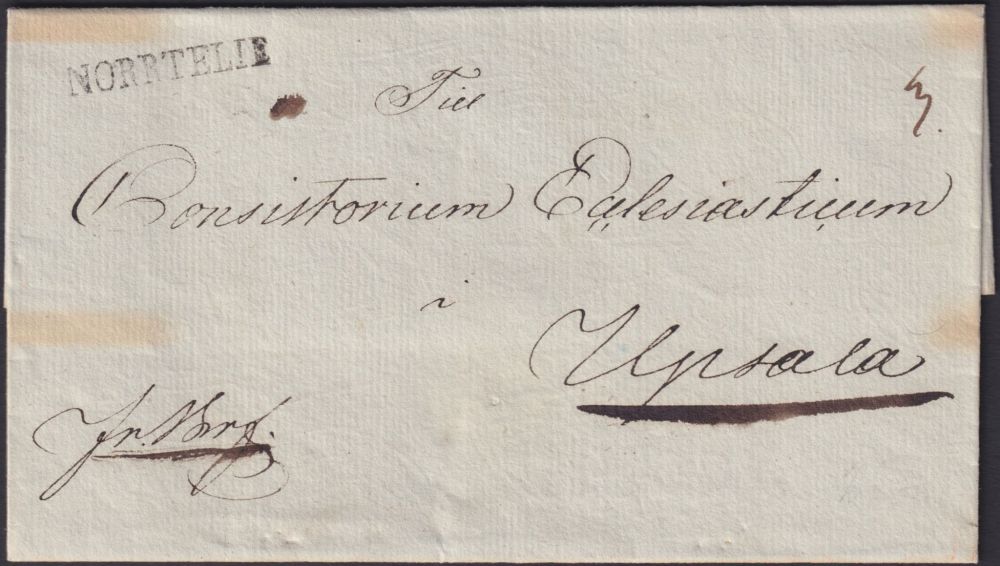 NORRTELIE
Till
3.
Consistorium Ecclesiasticum
i
Upsala
fr. Brf.